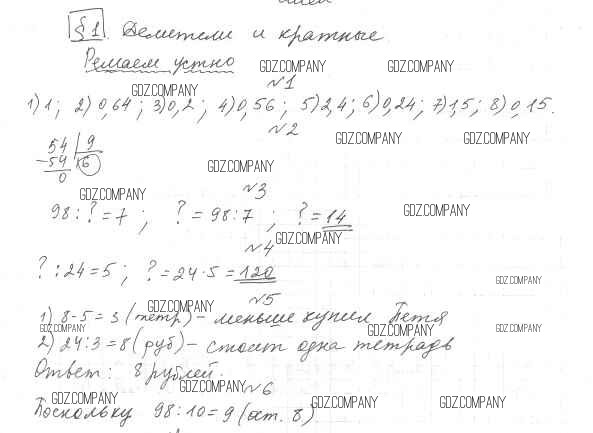 § 1. Делители и кратные
Решаем устно
GDZ.COMPANY GDZ.COMPANY
№1
GDZ.COMPANY
1) 1; 2) 0,64; 3) 0,2; 4) 0,56; 5) 2,4; 6) 0,24; 7) 1,5; 8) 0,15.
№2
GDZ.COMPANY GDZ.COMPANY
54 | 9
-54 | 6
0
GDZ.COMPANY
№3
GDZ.COMPANY
98 : ? = 7 ; ? = 98 : 7 ; ? = 14
GDZ.COMPANY
GDZ.COMPANY
№4
? : 24 = 5 ; ? = 24 · 5 = 120
GDZ.COMPANY
№5
GDZ.COMPANY
1) 8-5 = 3 (тетр) - меньше купил Петя
GDZ.COMPANY GDZ.COMPANY GDZ.COMPANY
2) 24:3 = 8 (руб) - стоит одна тетрадь
Ответ: 8 рублей.
GDZ.COMPANY №6
GDZ.COMPANY GDZ.COMPANY GDZ.COMPANY
Поскольку 98:10 = 9 (ост. 8)